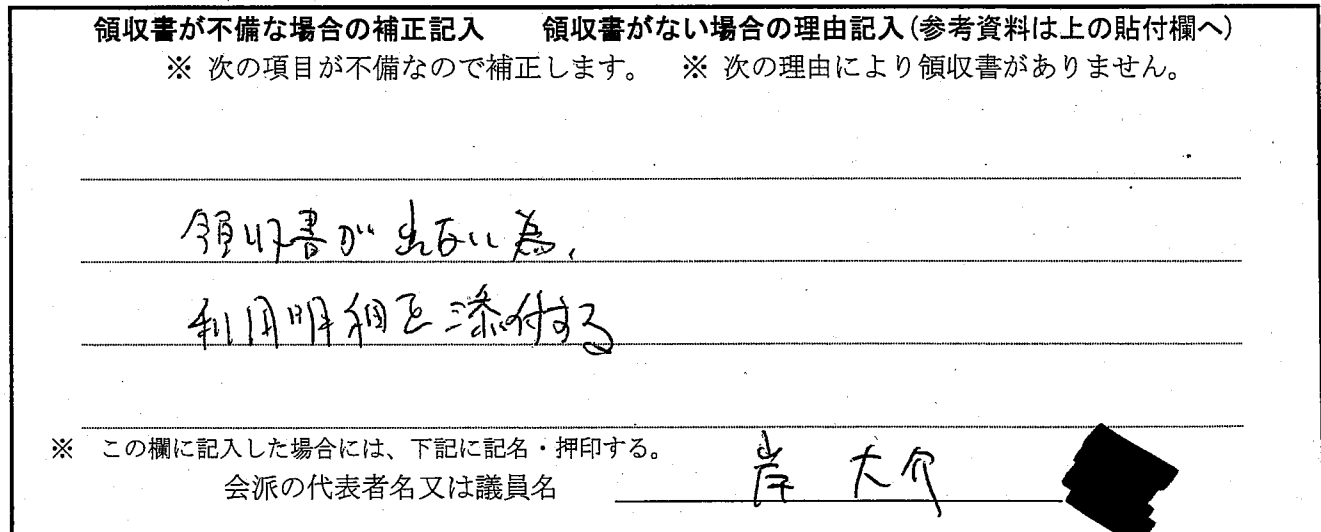 領収書が不備な場合の補正記入　領収書がない場合の理由記入(参考資料は上の貼付欄へ)
※ 次の項目が不備なので補正します。　※ 次の理由により領収書がありません。
領収書が出ない為、
利用明細を添付する
※ この欄に記入した場合には、下記に記名・押印する。
会派の代表者名又は議員名　岸 大介